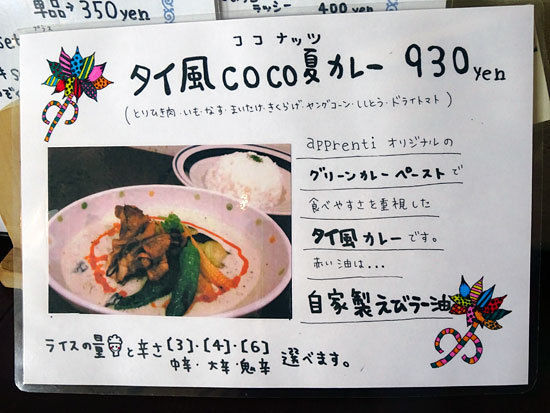 単品→350yen
ラッシー
400yen
ココナッツ
タイ風coco夏カレー 930yen
(とりひき肉・いも・なす・まいたけ・きくらげ・ヤングコーン・ししとう・ドライトマト)
apprenti オリジナルの
グリーンカレーペーストで
食べやすさを重視した
タイ風カレーです。
赤い油は...
自家製えびラー油
ライスの量と辛さ[3]・[4]・[6]選べます。
中辛・大辛・鬼辛